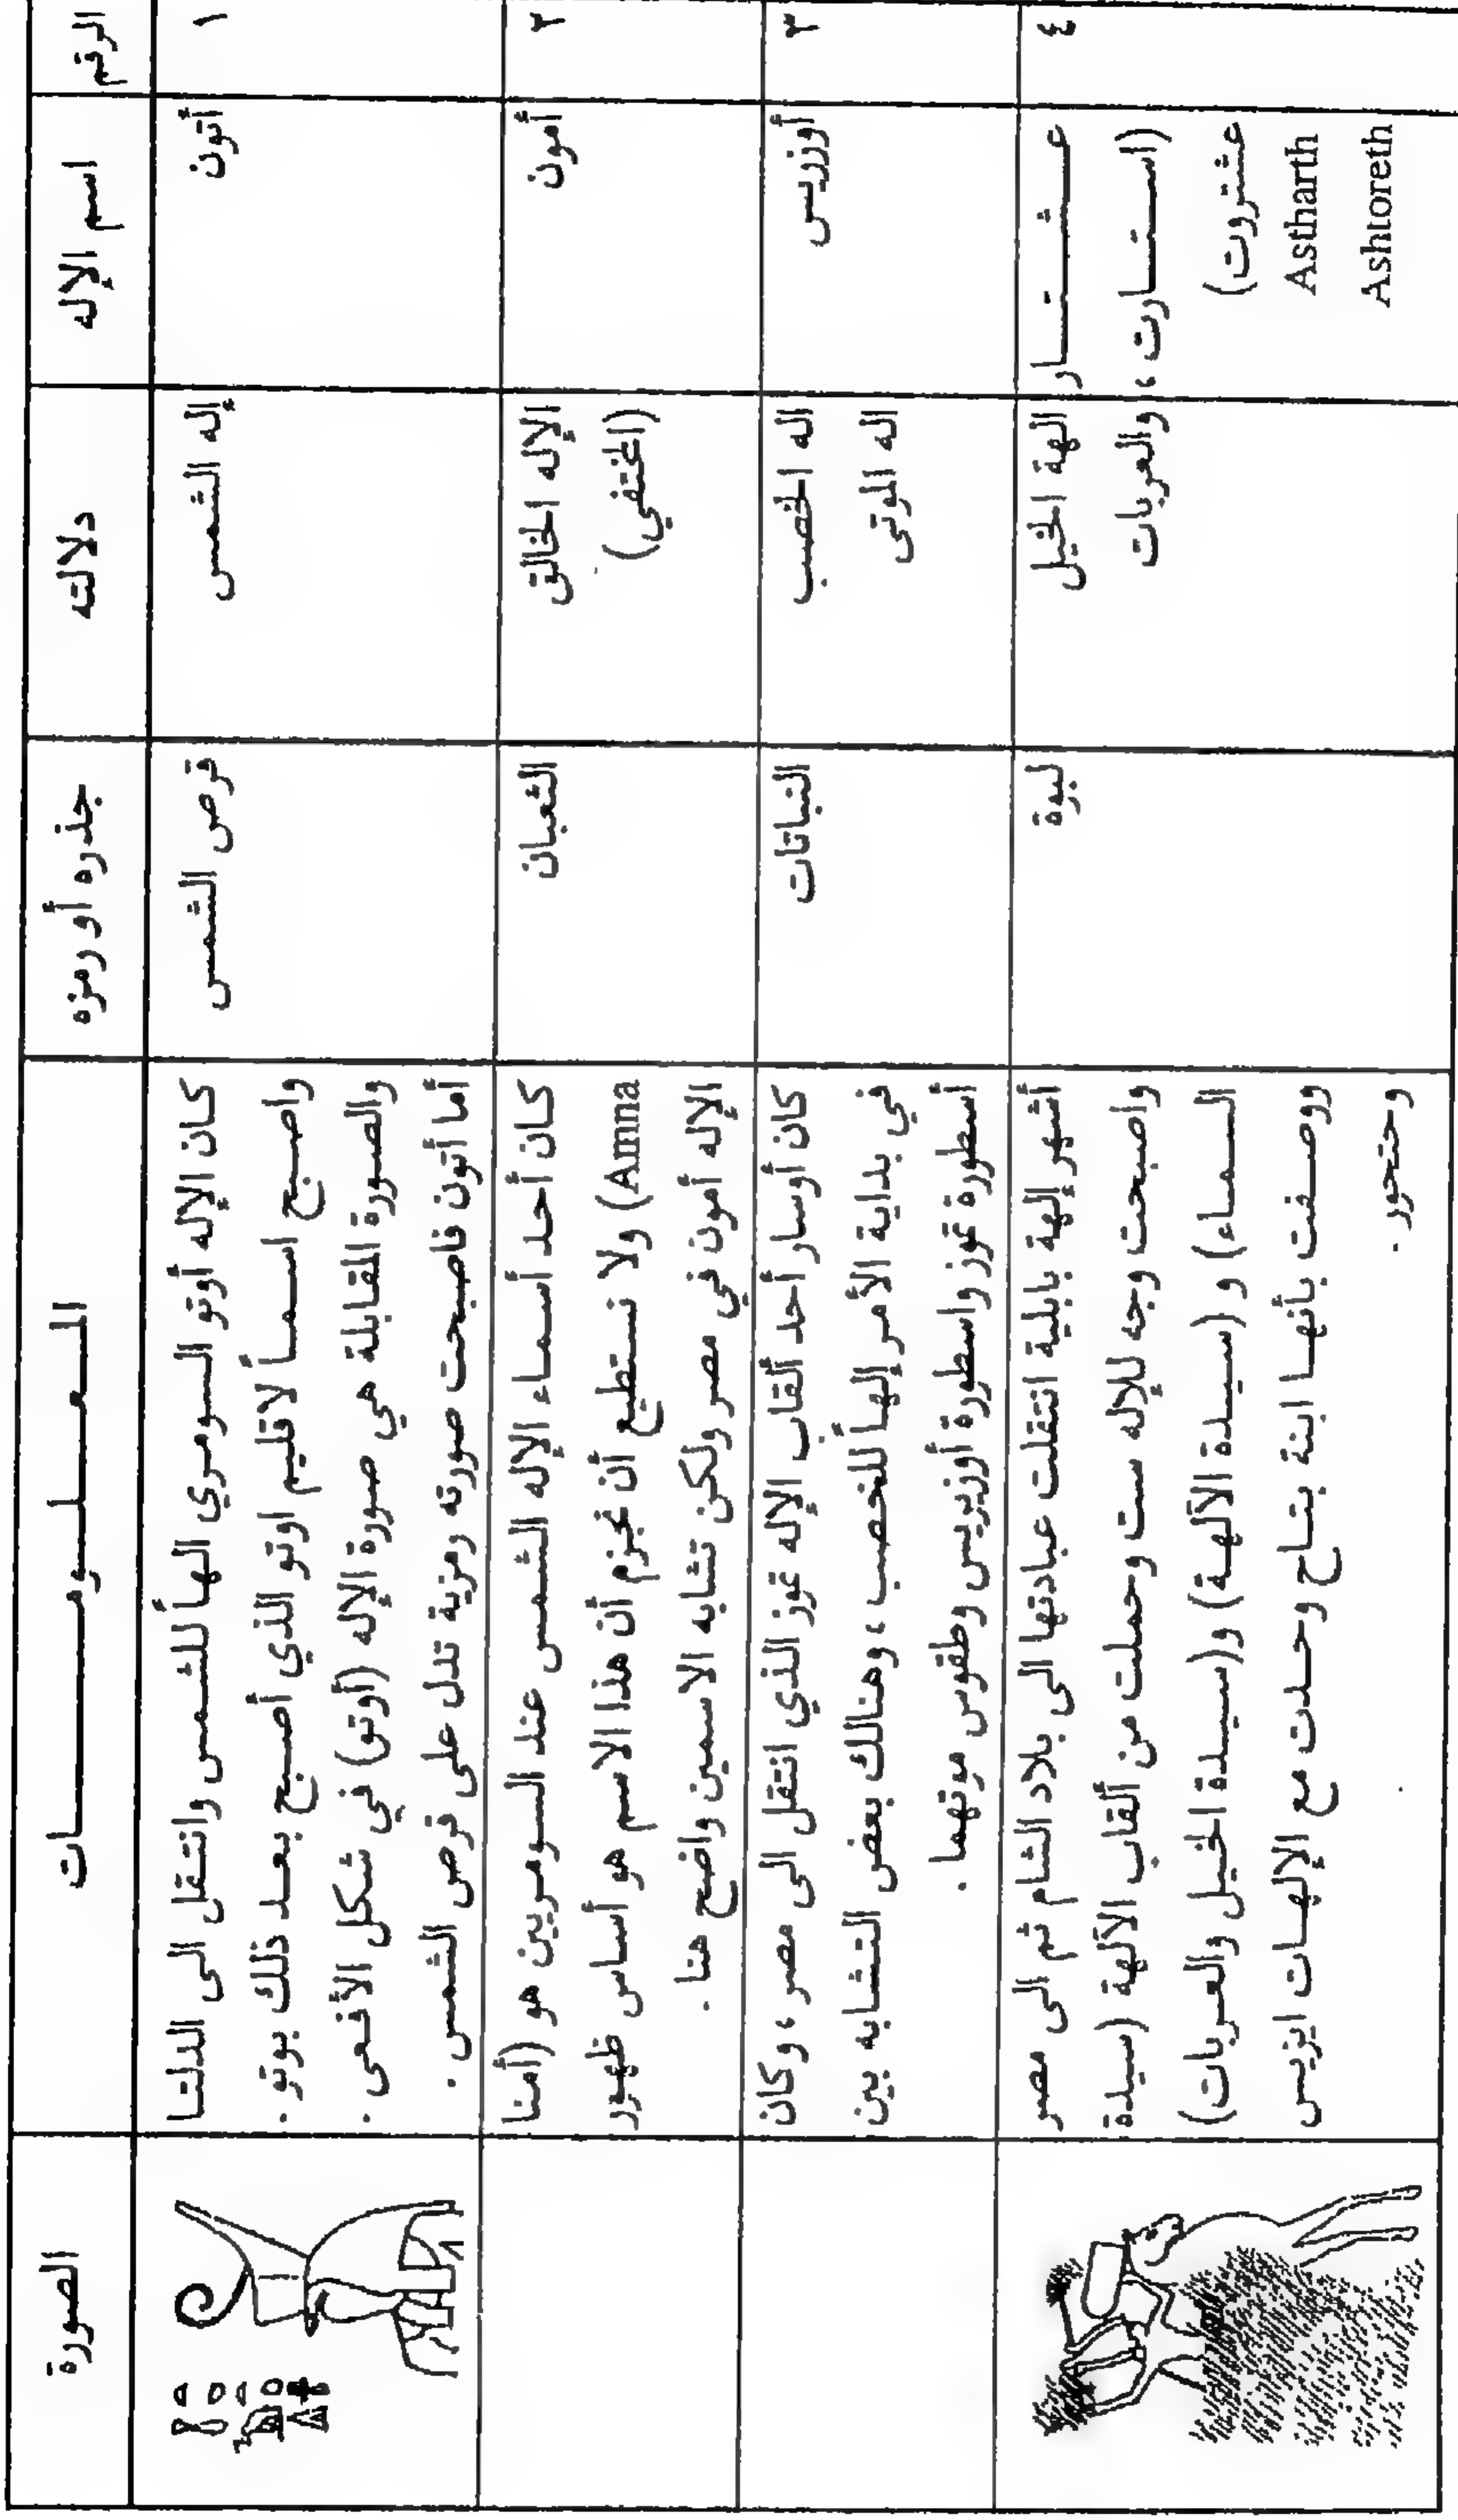 الرقم
اسم الإله
دلالته
جذره أو رمزه
المعلومات
الصورة
١
أتون
إله الشمس
قرص الشمس
كان الإله أوتو السومري الهاً للشمس وانتقل الى الدلتا
واصبح اسماً لاقليم اوتو الذي أصبح بعد ذلك بوتو .
والصورة المقابلة هي صورة الإله (أوتو) في شكل الأفعى .
أما أتون فاصبحت صورته رمزية تدل على قرص الشمس .
٢
أمون
الإله الخالق
(المختفي)
الثعبان
كان أحد أسماء الإله الشمس عند السومريين هو (أمنا
Amna) ولا نستطيع أن نجزم أن هذا الاسم هو أساس ظهور
الإله أمون في مصر ولكن تشابه الاسمين واضح هنا .
٣
أوزريس
اله الخصب
اله الموتى
النباتات
كان أوسار أحد ألقاب الإله تموز الذي انتقل الى مصر ، وكان
في بداية الأمر إلهاً للخصب ، وهنالك بعض التشابه بين
أسطورة تموز واسطورة أوزيريس وطقوس موتهما .
٤
عشتار
(استارت ،
عشتروت)
Astharth
Ashtoreth
الهة الخيل
والعربات
لبوة
أشهر إلهة بابلية انتقلت عبادتها الى بلاد الشام ثم الى مصر
واصبحت وجه للإله ست وحملت من ألقاب الآلهة (سيدة
السماء) و (سيدة الآلهة) و(سيدة الخيل والعربات)
ووصفت بأنها ابنة بتاح وحدت مع الإلهات ايزيس
وحتحور .